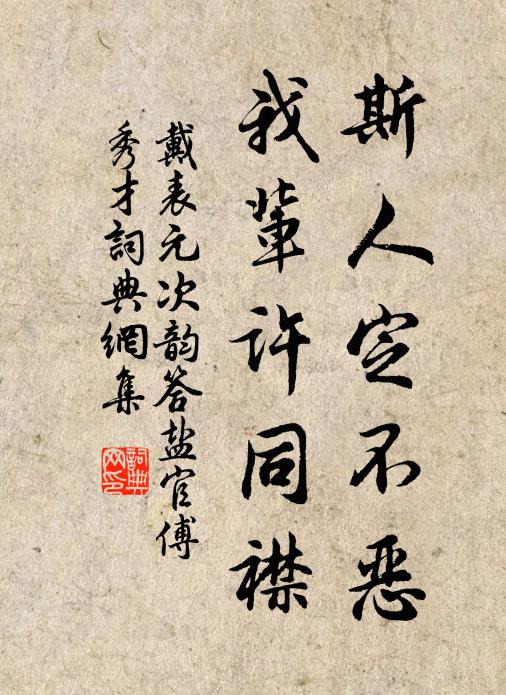 斯人定不恶
我輩许同襟
戴表元次韵答盐官傅
秀才詞典網集
詞典
网印